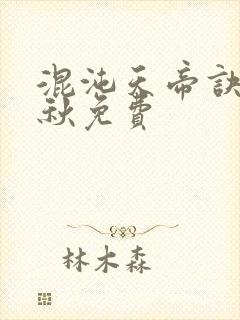 混沌天帝訣
秋免費
林木森